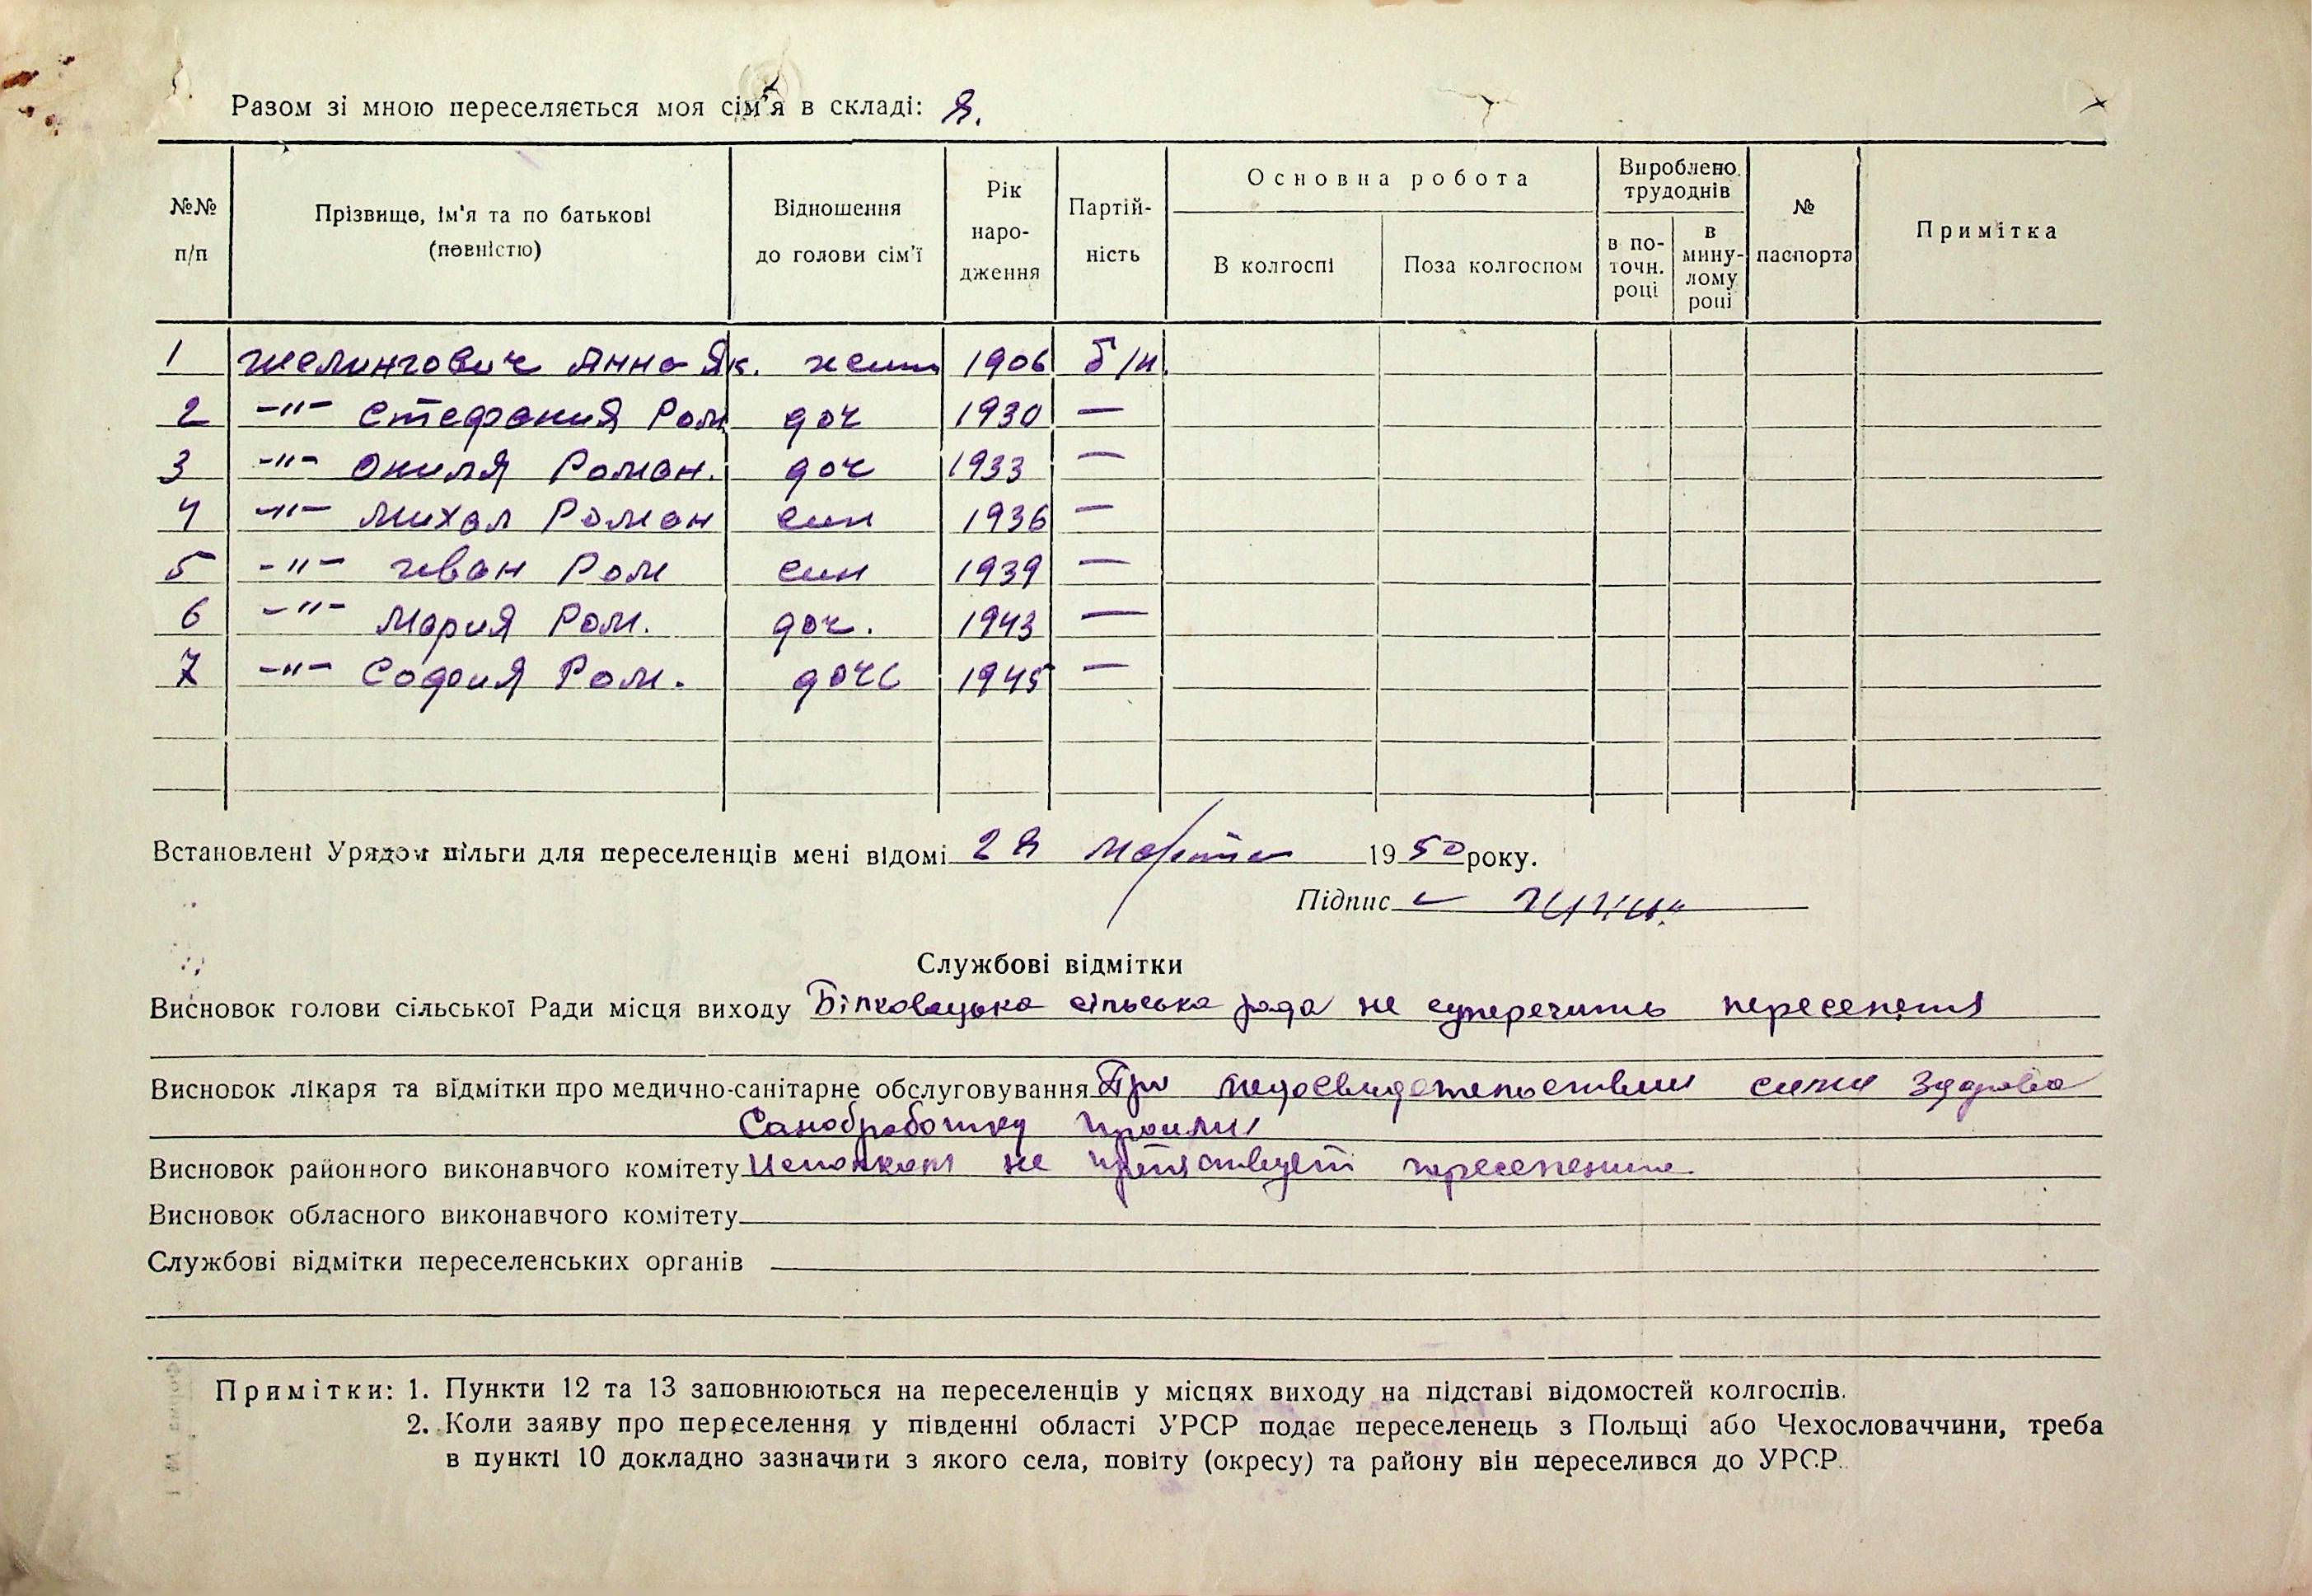 Разом зі мною переселяється моя сім'я в складі: 8.
№№ п/п
Прізвище, ім'я та по батькові (повністю)
Відношення до голови сім'ї
Рік наро- дження
Партій- ність
Основна робота
В колгоспі
Поза колгоспом
Вироблено трудоднів
в по- точн. році
в мину- лому році
№ паспорта
Примітка
1 Желингович Анна Як. жена 1906 б/п.
2 -"- Стефания Ром доч 1930 —
3 -"- Роман. доч 1933 —
4 -"- Михал Роман син 1936 —
5 -"- Иван Ром син 1939 —
6 -"- Мария Ром. доч. 1943 —
7 -"- София Ром. дочь 1945 —
Встановлені Урядом пільги для переселенців мені відомі 28 марта 1950 року.
Підпис
Службові відмітки
Висновок голови сільської Ради місця виходу сільська рада не суперечить
Висновок лікаря та відмітки про медично-санітарне обслуговування При здорова
Санобработку прошли
Висновок районного виконавчого комітету Исполком не препятствует
Висновок обласного виконавчого комітету
Службові відмітки переселенських органів
Примітки: 1. Пункти 12 та 13 заповнюються на переселенців у місцях виходу на підставі відомостей колгоспів.
2. Коли заяву про переселення у південні області УРСР подає переселенець з Польщі або Чехословаччини, треба
в пункті 10 докладно зазначити з якого села, повіту (окресу) та району він переселився до УРСР.